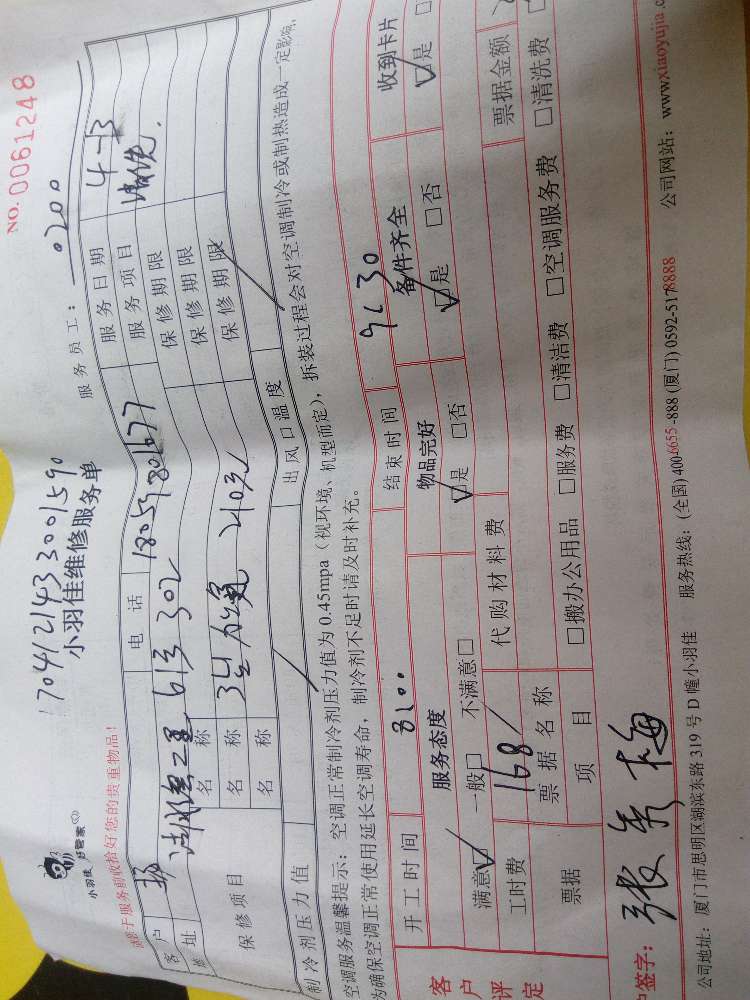 NO. 0061248
17041214333001590
小羽佳维修服务单
小羽佳 好管家
请于服务前收拾好您的贵重物品!
服 务 员 工: 0200
客 户
电 话 18059801677
服 务 日 期 4-13
地 址 二里 61号 302
服 务 项 目
保 修 项 目
名 称 3台 2103
保 修 期 限
名 称
保 修 期 限
名 称
保 修 期 限
制 冷 剂 压 力 值
出 风 口 温 度
空调服务温馨提示:空调正常制冷剂压力值为 0.45mpa(视环境、机型而定),拆装过程会对空调制冷或制热造成一定影响,
为确保空调正常使用延长空调寿命,制冷剂不足时请及时补充。
开 工 时 间 8:00
结 束 时 间 9:30
客 户 评 定
服务态度
物品完好
备件齐全
收到卡片
满意☑ 一般□ 不满意□
☑是 □否
☑是 □否
☑是 □
工时费 168
代 购 材 料 费
票据金额
票据
票 据 名 称
项 目
□搬办公用品 □服务费 □清洁费 □空调服务费 □清洗费
户签字: 张秀梅
公司地址:厦门市思明区湖滨东路 319 号 D 幢小羽佳 服务热线:(全国) 4006655-888 (厦门) 0592-5178888 公司网站:www.xiaoyujia.c